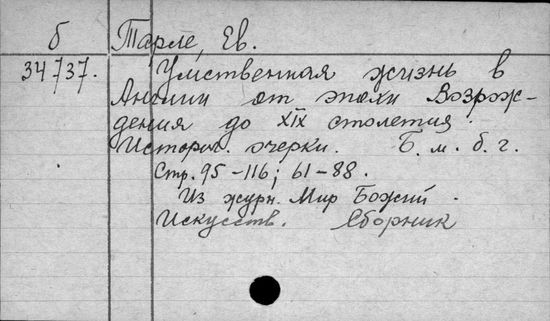 б Тарле, Ев.
34737. Умственная жизнь в
Англии от эпохи Возрож-
дения до XIX столетия.
Историч. очерки. Б. м. б. г.
Стр. 95-116; 61-88.
Из журн. Мир Божий.
Искусств. Сборник